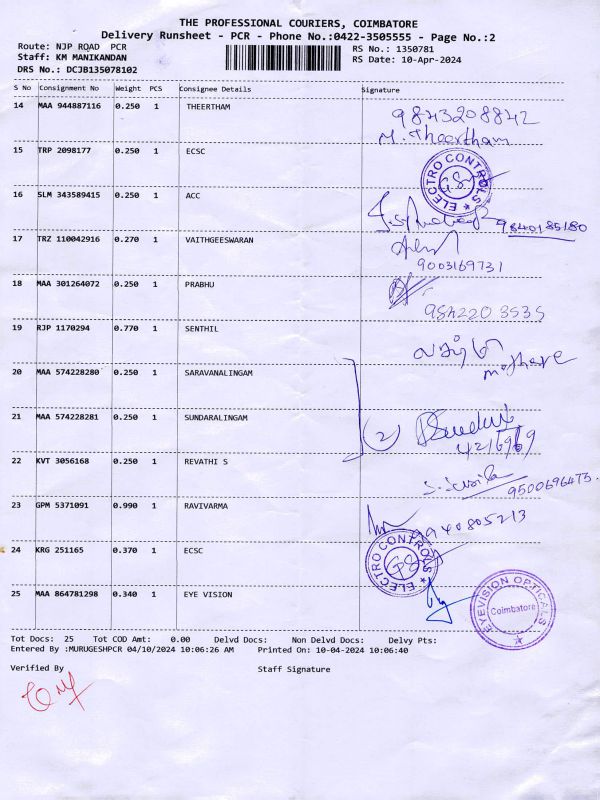 THE PROFESSIONAL COURIERS, COIMBATORE
Delivery Runsheet - PCR - Phone No.:0422-3505555 - Page No.:2
Route: NJP ROAD PCR RS No.: 1350781
Staff: KM MANIKANDAN RS Date: 10-Apr-2024
DRS No.: DCJB135078102
S No Consignment No Weight PCS Consignee Details Signature
14 MAA 944887116 0.250 1 THEERTHAM 9843208842
M. Theertham
15 TRP 2098177 0.250 1 ECSC
ELECTRO CONTROLS
16 SLM 343589415 0.250 1 ACC
9840185180
17 TRZ 110042916 0.270 1 VAITHGEESWARAN
9003169731
18 MAA 301264072 0.250 1 PRABHU
984220 3535
19 RJP 1170294 0.770 1 SENTHIL
20 MAA 574228280 0.250 1 SARAVANALINGAM
21 MAA 574228281 0.250 1 SUNDARALINGAM (2)
22 KVT 3056168 0.250 1 REVATHI S
9500696473.
23 GPM 5371091 0.990 1 RAVIVARMA
9940805213
24 KRG 251165 0.370 1 ECSC
ELECTRO CONTROLS
25 MAA 864781298 0.340 1 EYE VISION
EYEVISION OPTICALS
Coimbatore
Tot Docs: 25 Tot COD Amt: 0.00 Delvd Docs: Non Delvd Docs: Delvy Pts:
Entered By :MURUGESHPCR 04/10/2024 10:06:26 AM Printed On: 10-04-2024 10:06:40
Verified By Staff Signature